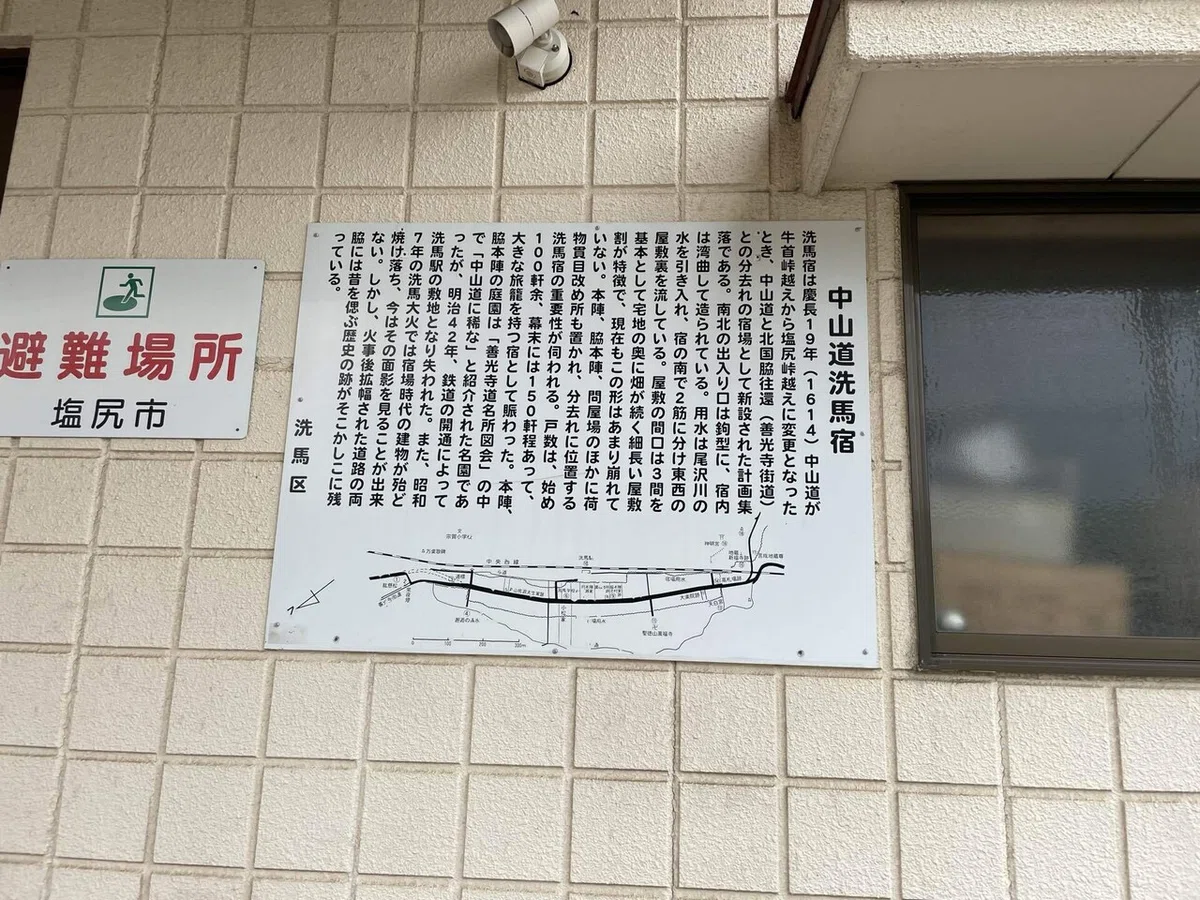 中山道洗馬宿
洗馬宿は慶長19年（1614）中山道が
牛首峠越えから塩尻峠越えに変更となった
とき、中山道と北国脇往還（善光寺街道）
との分去れの宿場として新設された計画集
落である。南北の出入り口は鉤型に、宿内
は湾曲して造られている。用水は尾沢川の
水を引き入れ、宿の南で2筋に分け東西の
屋敷裏を流している。屋敷の間口は3間を
基本として宅地の奥に畑が続く細長い屋敷
割が特徴で、現在もこの形はあまり崩れて
いない。本陣、脇本陣、問屋場のほかに荷
物貫目改め所も置かれ、分去れに位置する
洗馬宿の重要性が伺われる。戸数は、始め
100軒余、幕末には150軒程あって、
大きな旅籠を持つ宿として賑わった。本陣、
脇本陣の庭園は「善光寺道名所図会」の中
で「中山道に稀な」と紹介された名園であ
ったが、明治42年、鉄道の開通によって
洗馬駅の敷地となり失われた。また、昭和
7年の洗馬大火では宿場時代の建物が殆ど
焼け落ち、今はその面影を見ることが出来
ない。しかし、火事後拡幅された道路の両
脇には昔を偲ぶ歴史の跡がそこかしこに残
っている。
洗馬区
中央西線
宿場用水
避難場所
塩尻市